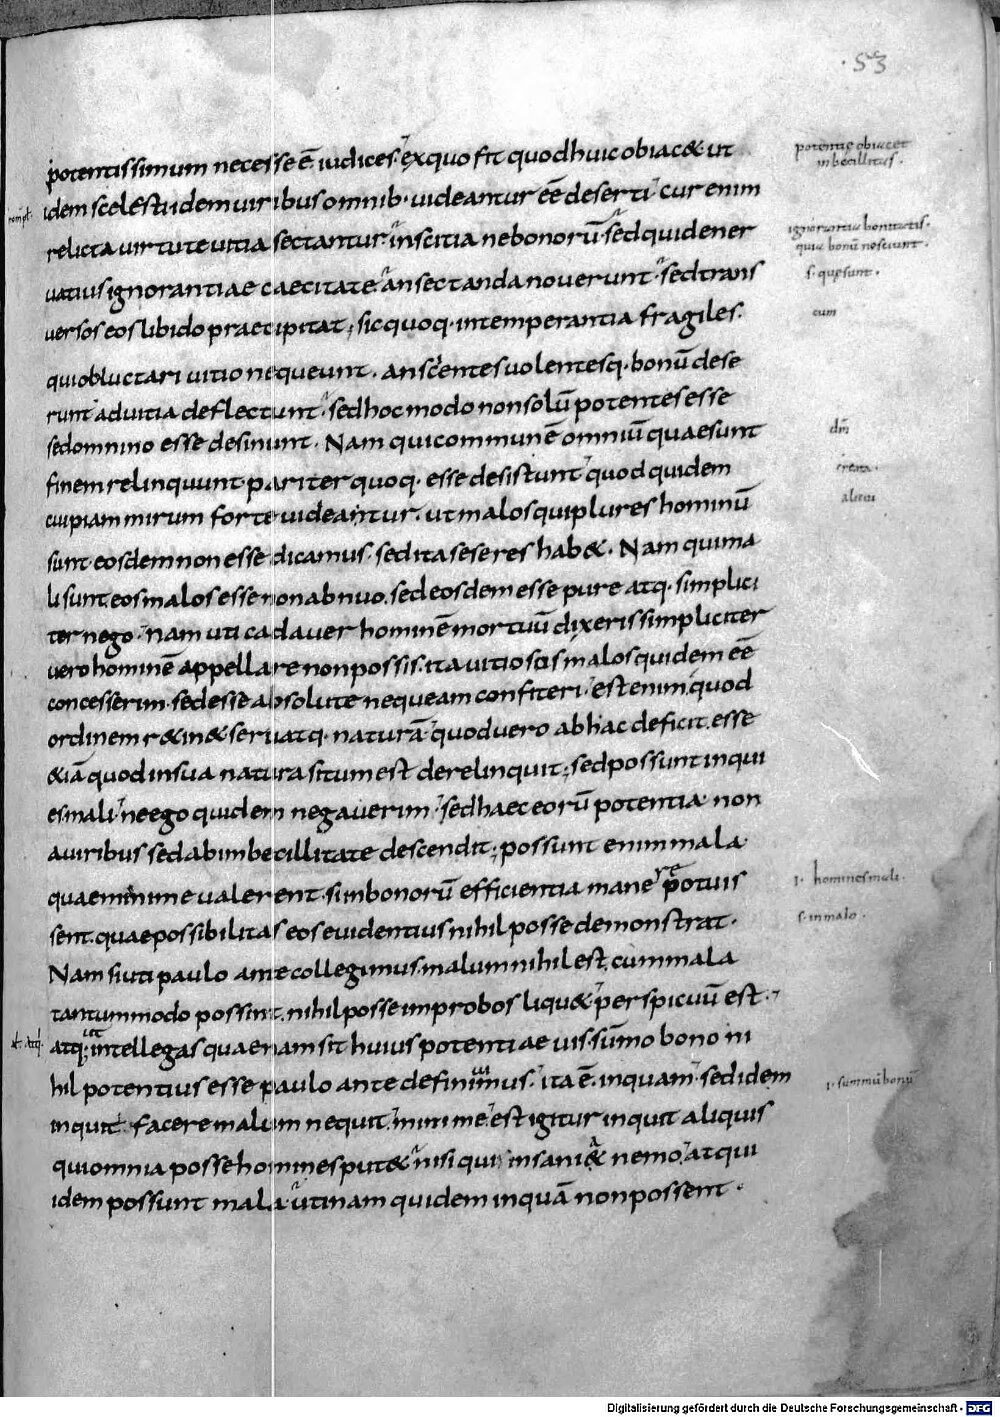 ·53
potentissimum necesse ē iudices exquo fit quod huic obiac& ut
idem scelesti idem uiribus omnib· uideantur eē deserti cur enim
relicta uirtute uitia sectantur inscitia ne bonorū sed quid ener
uatius ignorantiae caecitate an sectanda nouerunt sed trans
uersos eos libido praecipitat, sic quoq· intemperantia fragiles.
qui obluctari uitio nequeunt. an scientes uolentesq· bonū dese
runt ad uitia deflectunt sed hoc modo non solū potentes esse
sed omnino esse desinunt. Nam qui communē omniū quae sunt
finem relinquunt pariter quoq· esse desistunt quod quidem
cuipiam mirum forte uideantur. ut malos qui plures hominū
sunt eosdem non esse dicamus. sed ita sese res hab&. Nam qui ma
li sunt eos malos esse non abnuo. sed eosdem esse pure atq· simplici
ter nego. nam uti cadauer hominē mortuū dixeris simpliciter
uero hominē appellare non possis. ita uitiosos malos quidem eē
concesserim. sed esse absolute nequeam confiteri. est enim quod
ordinem r&in& seruatq· naturā quod uero ab hac deficit. esse
&iā quod in sua natura situm est derelinquit; sed possunt inqui
es mali ne ego quidem negauerim sed haec eorū potentia non
a uiribus sed ab imbecillitate descendit; possunt enim mala
quae minime ualerent. si in bonorū efficientia mane re potuis
sent. quae possibilitas eos euidentius nihil posse demonstrat.
Nam si uti paulo ante collegimus. malum nihil est, cum mala
tantummodo possint. nihil posse improbos liqu& perspicuū est.
atq; ut intellegas quaenam sit huius potentiae uis. sūmo bono ni
hil potentius esse paulo ante definiuimus. ita ē. inquam sed idem
inquit facere malum nequit minime est igitur inquit aliquis
qui omnia posse homines put& nisi qui insani& nemo atqui
idem possunt mala utinam quidem inquā non possent.
potentię obiacet
imbecillitas.
ignorantia bonitatis.
quia bonū nesciunt.
s. quę sunt.
cum
dm̄
i. homines mali.
s. in malo.
al. atq·
i. summū bonū
Digitalisierung gefördert durch die Deutsche Forschungsgemeinschaft - DFG